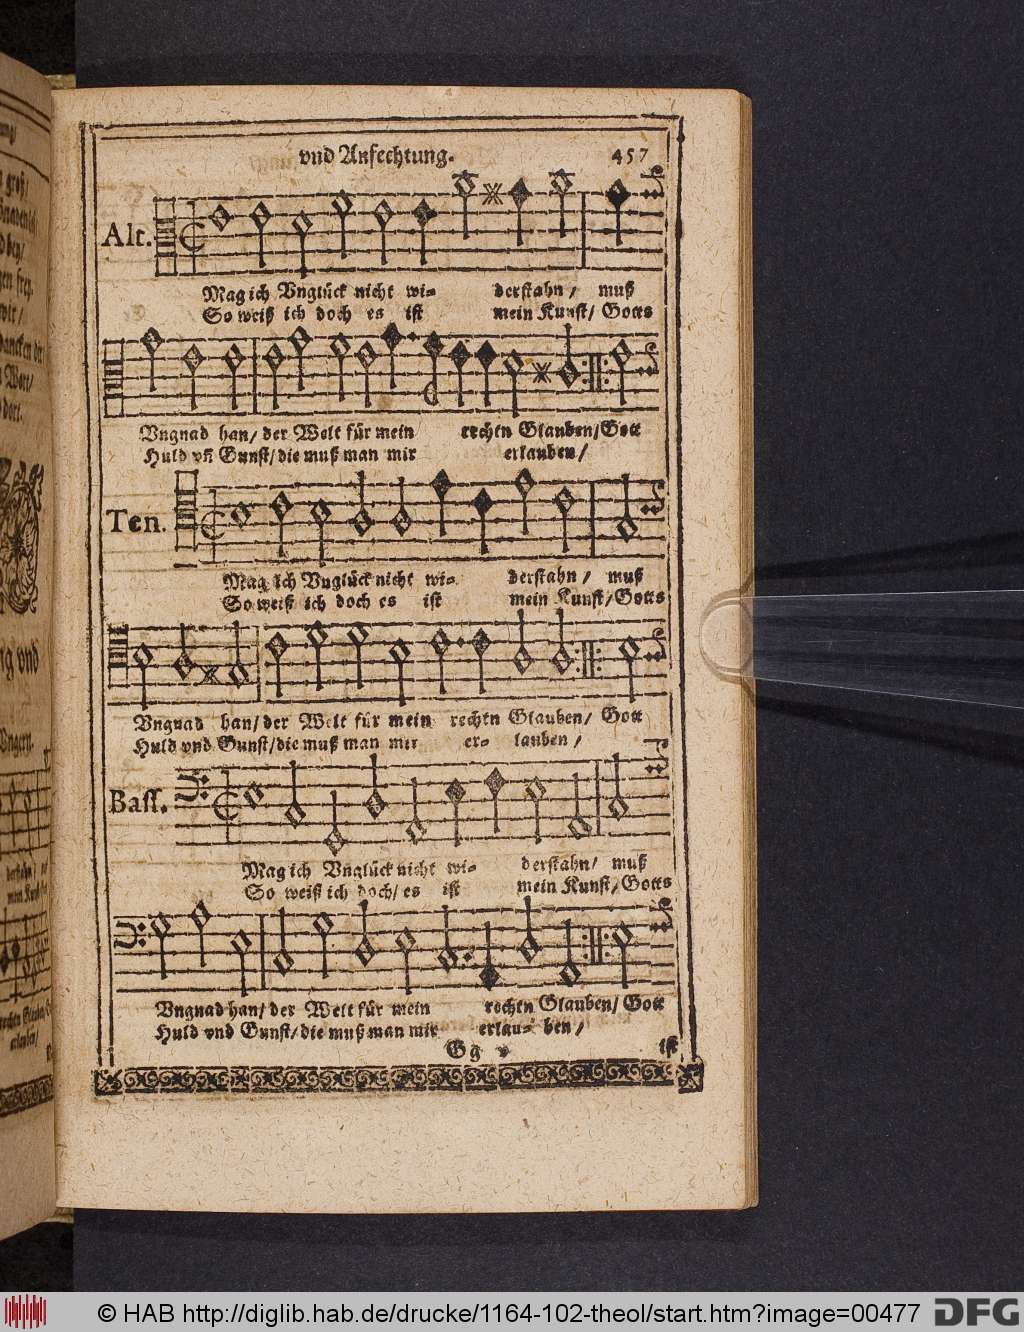 vnd Anfechtung.
457
Alt.
Mag ich Vnglück nicht wi= derstahn / muß
So weiß ich doch es ist mein Kunst / Gotts
Vngnad han / der Welt für mein rechtn Glauben / Gott
Huld vñ Gunst / die muß man mir erlauben /
Ten.
Mag ich Vnglück nicht wi= derstahn / muß
So weiß ich doch es ist mein Kunst / Gotts
Vngnad han / der Welt für mein rechtn Glauben / Gott
Huld vnd Gunst / die muß man mir er= lauben /
Bass.
Mag ich Vnglück nicht wi= derstahn / muß
So weiß ich doch / es ist mein Kunst / Gotts
Vngnad han / der Welt für mein rechtn Glauben / Gott
Huld vnd Gunst / die muß man mir erlau= ben /
Gg v
ist
© HAB http://diglib.hab.de/drucke/1164-102-theol/start.htm?image=00477
DFG